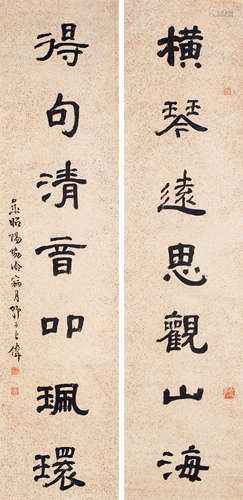 橫琴遠思觀山海
得句清音叩珮環